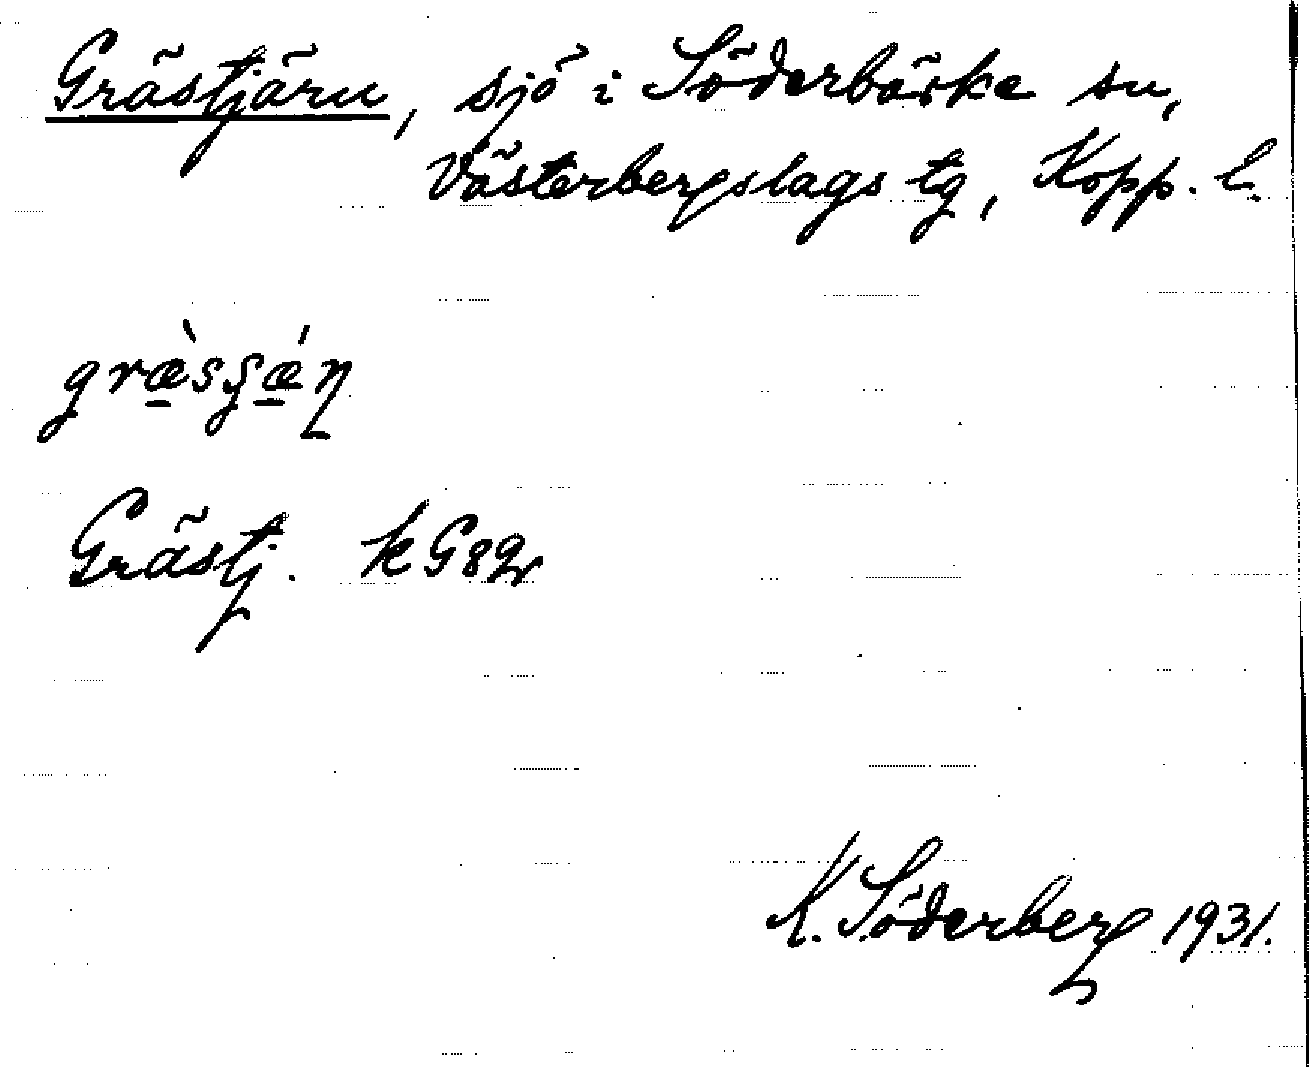 Grästjärn, sjö i Söderbärke sn,
Västerbergslags tg, Kopp. l.
græ̀sʂǽɳ
Grästj. kG82
K. Söderberg 1931.